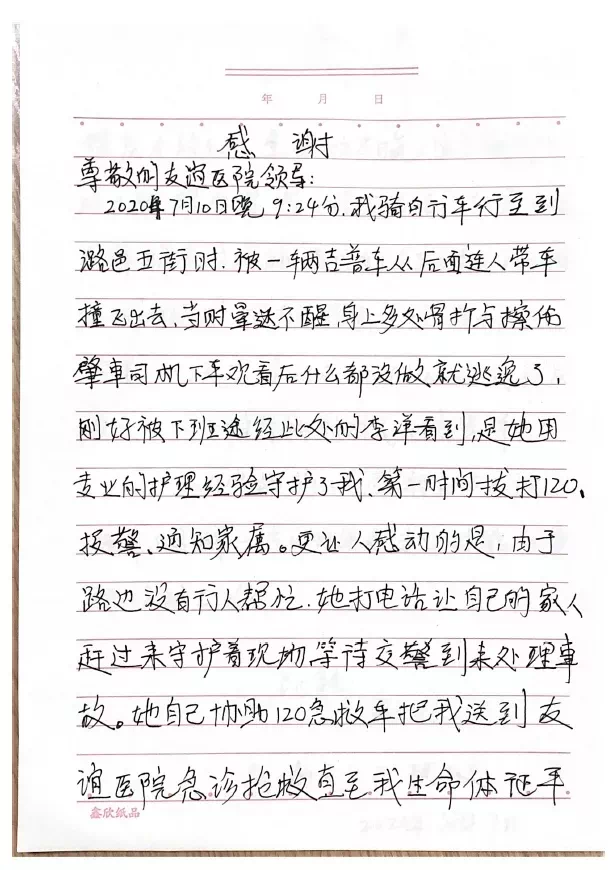 年 月 日
感 谢
尊敬的友谊医院领导:
2020年7月10日晚9:24分,我骑自行车行至到
潞邑五街时.被一辆吉普车从后面连人带车
撞飞出去,当时晕迷不醒,身上多处骨折与擦伤
肇车司机下车观看后什么都没做就逃逸了,
刚好被下班途经此处的李洋看到,是她用
专业的护理经验守护了我、第一时间拔打120、
报警、通知家属。更让人感动的是,由于
路边没有行人帮忙.她打电话让自己的家人
赶过来守护着现场等待交警到来处理事
故。她自己协助120急救车把我送到友
谊医院急诊抢救直至我生命体征平
鑫欣纸品